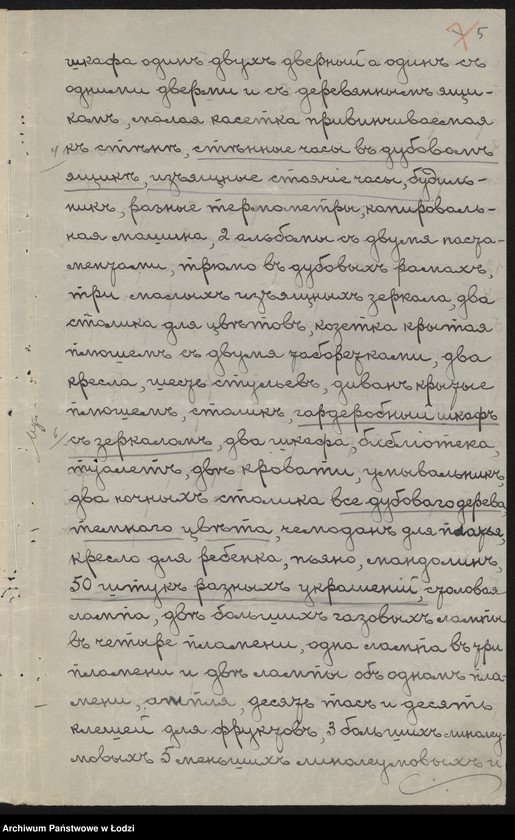 5
шкафа одинъ двухъ дверный а одинъ съ
одними дверми и съ деревяннымъ ящи-
комъ, малая касетка привинчиваемая
къ стѣнѣ, стѣнные часы въ дубовомъ
ящикѣ, изъящные стоячіе часы, будиль-
никъ, разные термометры, копироваль-
ная машина, 2 альбомы съ двумя
трюмо въ дубовыхъ рамахъ,
три малыхъ изъящныхъ зеркала, два
столика для цвѣтовъ, козетка крытая
плюшемъ съ двумя два
кресла, шесть стульевъ, диванъ крытые
плюшемъ, столикъ, гардеробный шкафъ
съ зеркаломъ, два шкафа, библіотека,
туалетъ, двѣ кровати, умывальникъ,
два ночныхъ столика все дубоваго дерева
темного цвѣта, чемоданъ для платья,
кресло для ребенка, пьяно, мандолинъ,
50 штукъ разныхъ украшеній, столовая
лампа, двѣ большихъ газовыхъ лампы
въ четыре пламени, одна лампа въ три
пламени и двѣ лампы объ одномъ пла-
мени, десять тасъ и десять
клещей для фруктовъ, 3 большихъ линолеу-
мовыхъ 5 меньшихъ линолеумовыхъ и
Archiwum Państwowe w Łodzi